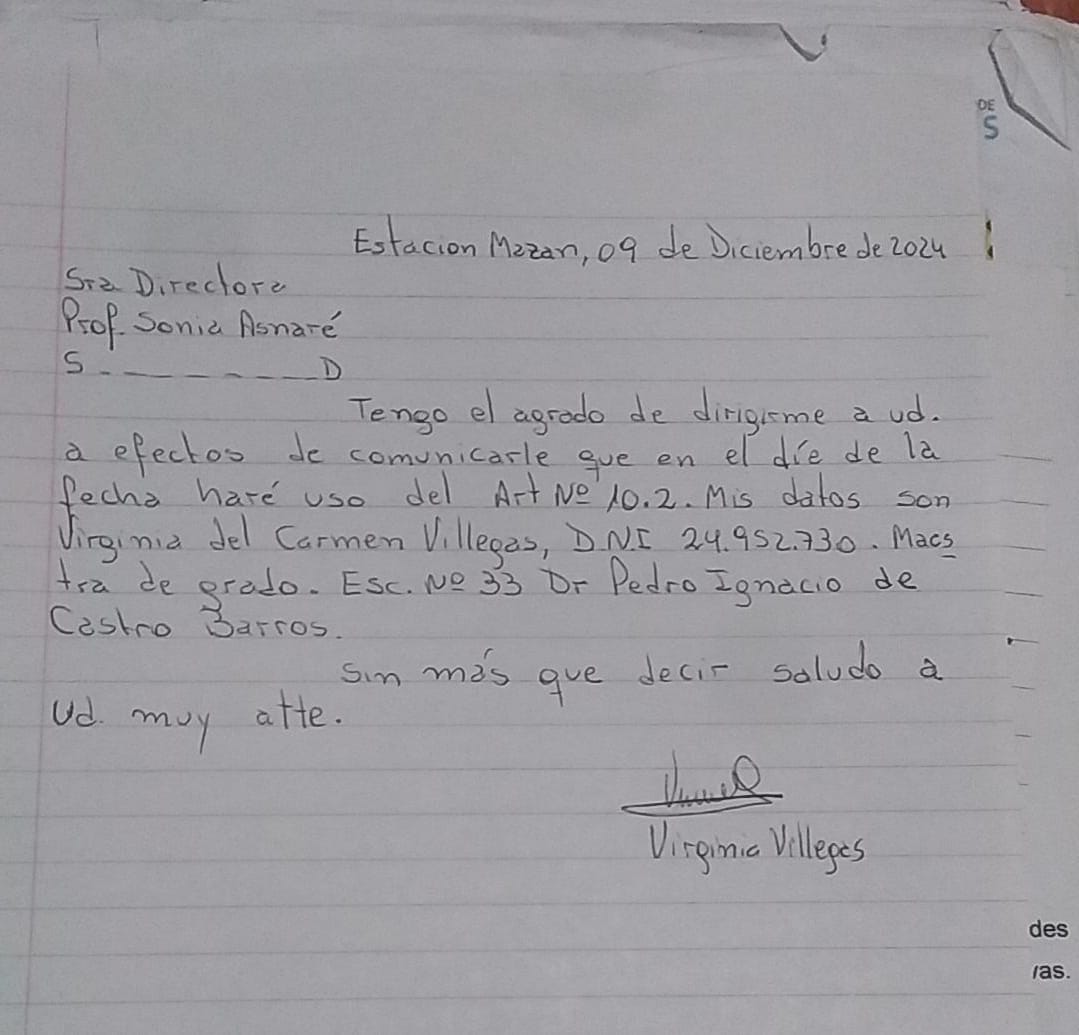 DE
S
Estacion Mazan, 09 de Diciembre de 2024
Sra Directora
Prof. Sonia Asnaré
S. _ _ _ _ _ _ D
Tengo el agrado de dirigirme a ud.
a efectos de comunicarle que en el día de la
fecha haré uso del Art Nº 10.2. Mis datos son
Virginia del Carmen Villegas, DNI 24.952.730. Maes
tra de grado. Esc. Nº 33 Dr Pedro Ignacio de
Castro Barros.
Sin más que decir saludo a
Ud. muy atte.
Virginia Villegas
des
vas.